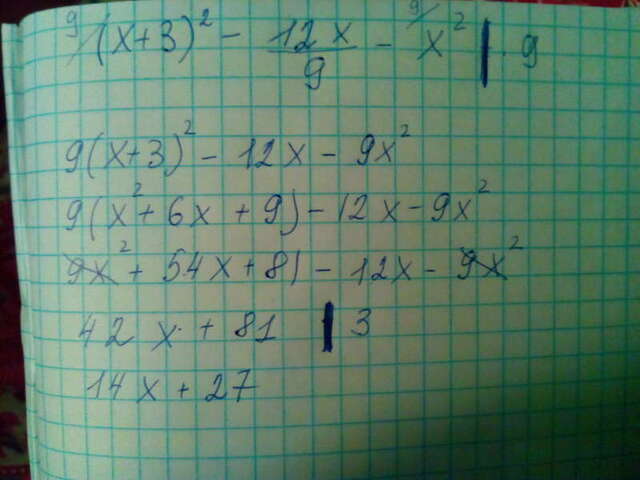 9/ (x+3)² - 12x/9 - 9/ x² | · 9
9(x+3)² - 12x - 9x²
9(x² + 6x + 9) - 12x - 9x²
9x² + 54x + 81 - 12x - 9x²
42x + 81 | 3
14x + 27